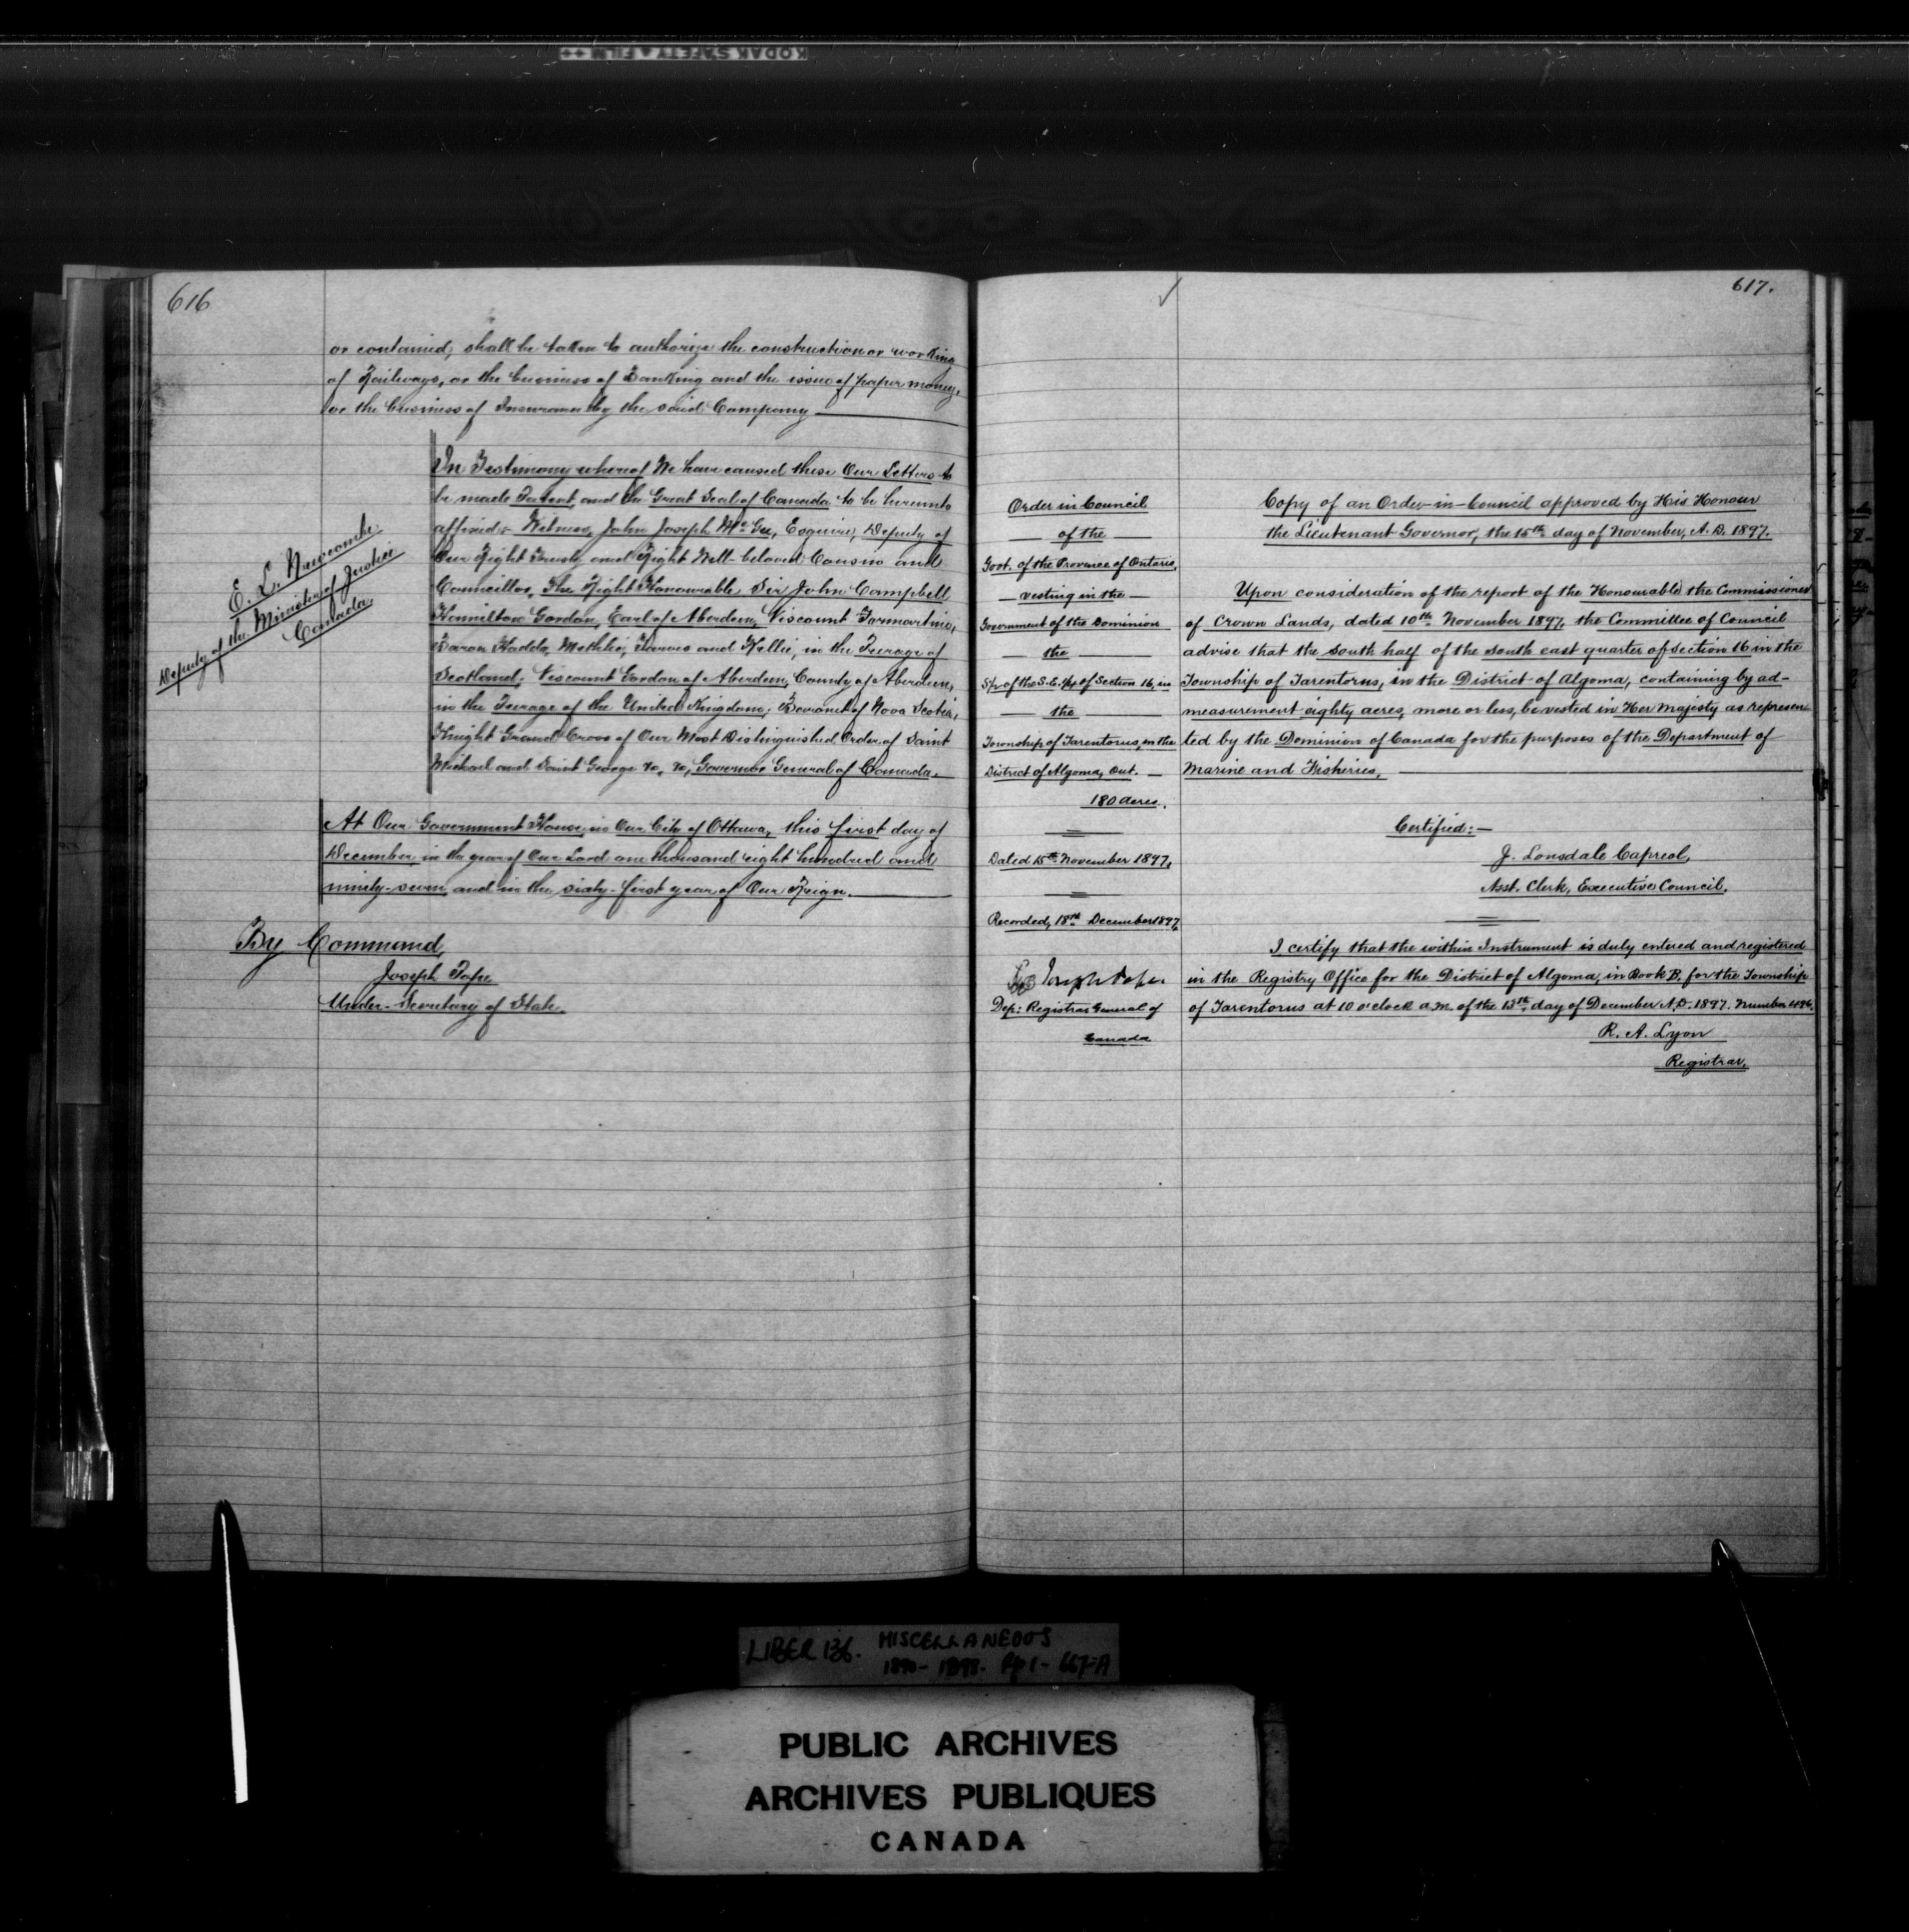 616
or contained, shall be taken to authorize the construction or working
of Railways, or the business of Banking and the issue of paper money,
or the business of Insurance by the said Company
In Testimony whereof We have caused these Our Letters to
be made Patent, and the Great Seal of Canada to be hereunto
affixed:- Witness, John Joseph McGee, Esquire, Deputy of
Our Right Trusty and Right Well-beloved Cousin and
Councillor, The Right Honourable Sir John Campbell
Hamilton Gordon, Earl of Aberdeen, Viscount Formartine,
Baron Haddo, Methlic, Tarves and Kellie, in the Peerage of
Scotland; Viscount Gordon of Aberdeen, County of Aberdeen,
in the Peerage of the United Kingdom; Baronet of Nova Scotia,
Knight Grand Cross of Our Most Distinguished Order of Saint
Michael and Saint George &c, &c, Governor General of Canada.
E. L. Newcombe
Deputy of the Minister of Justice
Canada
At Our Government House, in Our City of Ottawa, this first day of
December in the year of Our Lord one thousand eight hundred and
ninety-seven, and in the sixty-first year of Our Reign.
By Command,
Joseph Pope
Under-Secretary of State.
617.
Order in Council
of the
Govt. of the Province of Ontario,
vesting in the
Government of the Dominion
the
S½ of the S.E. ¼ of Section 16, in
the
Township of Tarentorus, in the
District of Algoma, Ont.
180 acres.
Dated 15th November 1897,
Recorded, 18th December 1897,
Joseph Pope
Dep: Registrar General of
Canada
Copy of an Order-in-Council approved by His Honour
the Lieutenant Governor, the 15th day of November, A.D. 1897.
Upon consideration of the report of the Honourable the Commissioner
of Crown Lands, dated 10th November 1897, the Committee of Council
advise that the south half of the south east quarter of Section 16 in the
Township of Tarentorus, in the District of Algoma, containing by ad-
measurement eighty acres, more or less, be vested in Her Majesty as represen-
ted by the Dominion of Canada for the purposes of the Department of
Marine and Fisheries.
Certified:-
J. Lonsdale Capreol,
Asst. Clerk, Executive Council.
I certify that the within Instrument is duly entered and registered
in the Registry Office for the District of Algoma, in Book B. for the Township
of Tarentorus at 10 o'clock a.m. of the 13th day of December A.D. 1897. Number 496.
R. A. Lyon
Registrar.
LIBER 136. MISCELLANEOUS
1890-1898. Pp 1-667-A
PUBLIC ARCHIVES
ARCHIVES PUBLIQUES
CANADA
KODAK SAFETY FILM